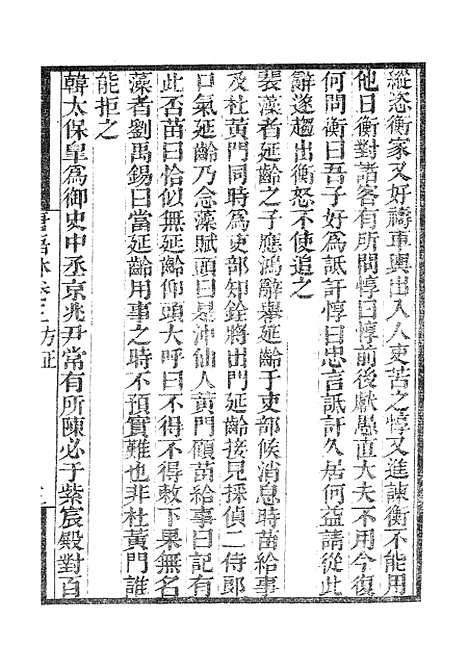 縱恣衡家又好禱車輿出入人吏苦之惇又進諫衡不能用
他日衡對諸客有所問惇曰惇前後獻愚直大夫不用今復
何問衡曰吾子好為詆訐惇曰忠言詆訐久居何益請從此
辭遂趨出衡怒不使追之
裴藻者延齡之子應鴻辭舉延齡于吏部候消息時苗給事
及杜黃門同時為吏部知銓將出門延齡接見探偵二侍郎
口氣延齡乃念藻賦頭曰是冲仙人黃門顧苗給事曰記有
此否苗曰恰似無延齡仰頭大呼曰不得不得敕下果無名
藻者劉禹錫曰當延齡用事之時不預實難也非杜黃門誰
能拒之
韓太保皐為御史中丞京兆尹常有所陳必于紫宸殿對百
唐語林卷三方正